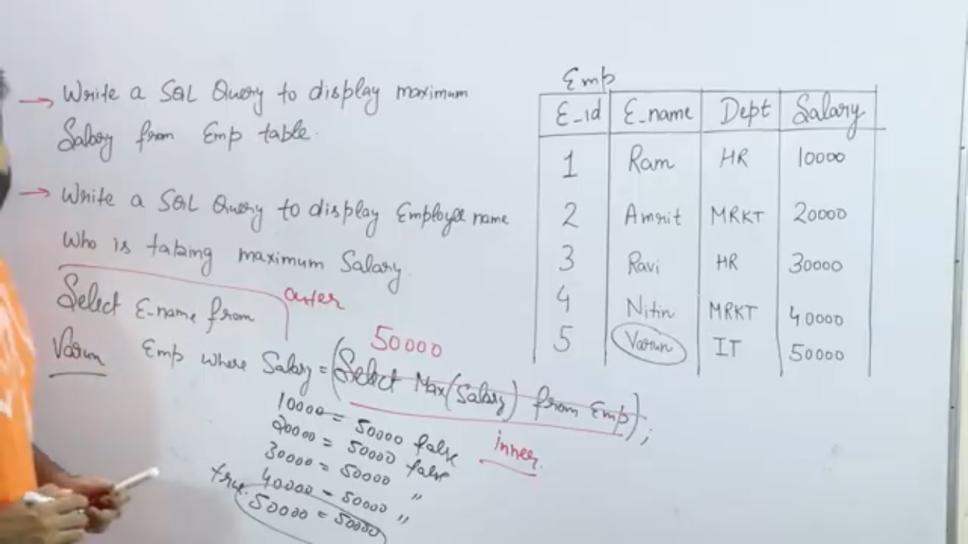 → Write a SQL Query to display maximum
Salary from Emp table.
→ Write a SQL Query to display Employee name
who is taking maximum Salary.
outer
Select E_name from
Varun Emp where Salary = (Select Max(Salary) from Emp);
50000
inner.
10000 = 50000 false
20000 = 50000 false
30000 = 50000 "
40000 = 50000 "
true. 50000 = 50000
Emp
E_id E_name Dept Salary
1 Ram HR 10000
2 Amrit MRKT 20000
3 Ravi HR 30000
4 Nitin MRKT 40000
5 Varun IT 50000